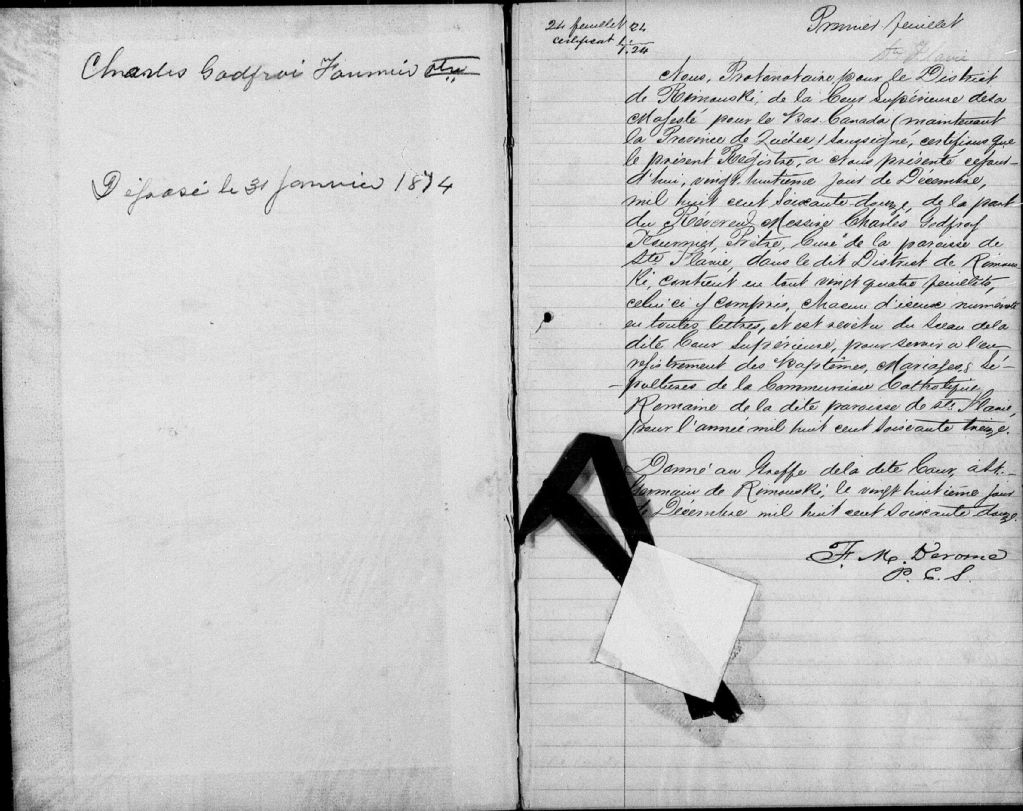 Charles Godfroi Fournier ptre
Déposé le 31 Janvier 1874
24 feuillet 24
certificat 1.
1.24
Premier feuillet
Ste Flavie
Nous, Protonotaire, pour le District
de Rimouski, de la Cour Supérieure de sa
Majesté pour le Bas Canada (maintenant
la Province de Québec) soussigné, certifions que
le présent Régistre, à Nous présenté cejour-
d'hui, vingt huitième jour de Décembre,
mil huit cent soixante-douze, de la part
du Révérend Messire Charles Godfroy
Fournier, Prêtre, Curé de la paroisse de
Ste Flavie, dans le dit District de Rimous-
ki, contient en tout vingt quatre feuillets,
celui ci y compris, chacun d'iceux numéroté
en toutes lettres, et est revêtu du Sceau de la
dite Cour Supérieure, pour servir à l'en-
registrement des Baptêmes, Mariages, Sé-
pultures de la Communion Catholique
Romaine de la dite paroisse de Ste Flavie,
pour l'année mil huit cent soixante treize.
Donné au Greffe de la dite Cour, à St.
Germain de Rimouski, le vingt huitième jour
de Décembre mil huit cent soixante douze.
F. M. Derome
P. C. S.